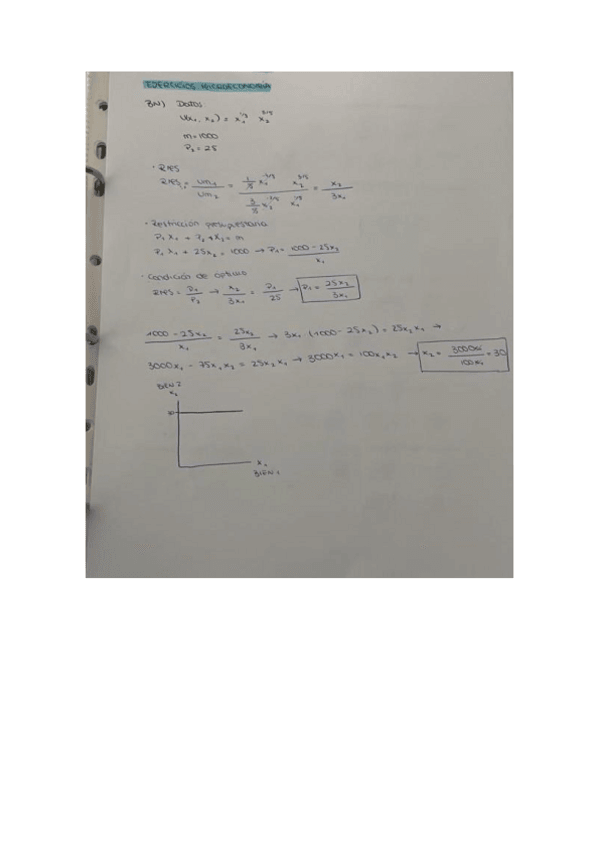 EJERCICIOS MICROECONOMÍA
3N) DATOS:
U(x₁, x₂) = x₁^1/5 x₂^3/5
m = 1000
P₂ = 25
· RMS
= x₂ / 3x₁
· Restricción presupuestaria
P₁ x₁ + P₂ x₂ = m
P₁ x₁ + 25x₂ = 1000 → P₁ = 1000 - 25x₂ / x₁
· Condición de óptimo
= P₁ / P₂ → x₂ / 3x₁ = P₁ / 25 → P₁ = 25x₂ / 3x₁
1000 - 25x₂ / x₁ = 25x₂ / 3x₁ → 3x₁ · (1000 - 25x₂) = 25x₂ x₁ →
3000x₁ - 75x₁x₂ = 25x₂ x₁ → 3000x₁ = 100x₁x₂ → x₂ = 3000x₁ / 100x₁ = 30
BIEN 2
x₂
30
x₁
BIEN 1